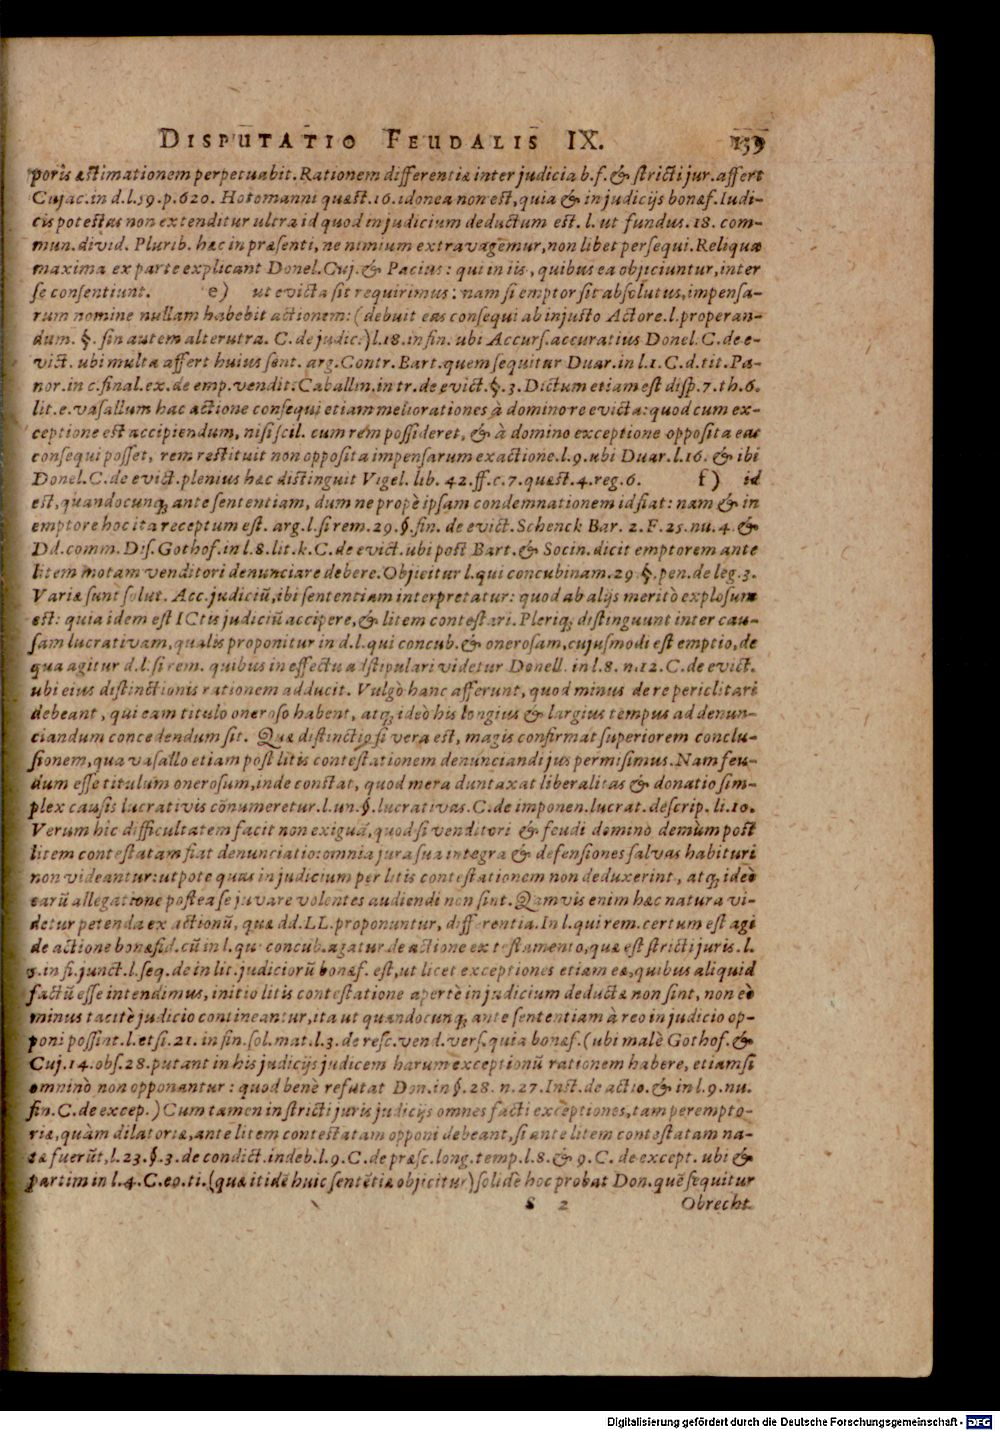 DISPUTATIO FEUDALIS IX. 139
poris æstimationem perpetuabit. Rationem differentiæ inter judicia b.f. & stricti jur. affert
Cujac. in d.l.59.p.620. Hotomanni quæst.16.idonea non est, quia & in judicijs bonæf. Iudi-
cis potestas non extenditur ultra id quod in judicium deductum est. l. ut fundus. 18. com-
mun. divid. Plurib. hæc in præsenti, ne nimium extravagemur, non libet persequi. Reliquæ
maxima ex parte explicant Donel. Cuj. & Pacius: qui in iis, quibus ea objiciuntur, inter
se consentiunt. e) ut evicta sit requirimus: nam si emptor sit absolutus, impensa-
rum nomine nullam habebit actionem: (debuit eas consequi ab injusto Actore. l. properan-
dum. §. sin autem alterutra. C. de judic:) l.18. in fin. ubi Accurs. accuratius Donel. C. de e-
vict. ubi multa affert huius sent. arg. Contr. Bart. quem sequitur Duar. in l.1. C. d. tit. Pa-
nor. in c. final. ex. de emp. vendit: Caballin. in tr. de evict. §. 3. Dictum etiam est disp. 7. th. 6.
lit. e. vasallum hac actione consequi etiam meliorationes à domino re evicta: quod cum ex-
ceptione est accipiendum, nisi scil. cum rem possideret, & à domino exceptione opposita eas
consequi posset, rem restituit non opposita impensarum exactione. l.9. ubi Duar. l.16. & ibi
Donel. C. de evict. plenius hæc distinguit Vigel. lib. 42. ff. c. 7. quæst. 4. reg. 6. f) id
est, quandocunq; ante sententiam, dum ne propè ipsam condemnationem id fiat: nam & in
emptore hoc ita receptum est. arg. l. si rem. 29. §. fin. de evict. Schenck Bar. 2. F. 25. nu. 4. &
Dd. comm. Dis. Gothof. in l.8. lit. k. C. de evict. ubi post Bart. & Socin. dicit emptorem ante
litem motam venditori denunciare debere. Objicitur l. qui concubinam. 29 §. pen. de leg. 3.
Variæ sunt solut. Acc. judiciũ, ibi sententiam interpretatur: quod ab alijs meritò explosum
est: quia idem est ICtis judiciũ accipere, & litem contestari. Pleriq; distinguunt inter cau-
sam lucrativam, qualis proponitur in d.l. qui concub. & onerosam, cujusmodi est emptio, de
qua agitur d.l. si rem. quibus in effectu adstipulari videtur Donell. in l.8. n.12. C. de evict.
ubi eius distinctionis rationem adducit. Vulgò hanc afferunt, quod minus de re periclitari
debeant, qui eam titulo oneroso habent, atq; ideò his longius & largius tempus ad denun-
ciandum concedendum sit. Quæ distinctio si vera est, magis confirmat superiorem conclu-
sionem, qua vasallo etiam post litis contestationem denunciandi jus permisimus. Nam feu-
dum esse titulum onerosum, inde constat, quod mera duntaxat liberalitas & donatio sim-
plex causis lucrativis cõnumeretur. l. un. §. lucrativas. C. de imponen. lucrat. descrip. li. 10.
Verum hic difficultatem facit non exiguã, quod si venditori & feudi domino demùm post
litem contestatam fiat denunciatio: omnia jura sua integra & defensiones salvas habituri
non videantur: utpote quas in judicium per litis contestationem non deduxerint, atq; ideò
earũ allegatione postea se juvare volentes audiendi non sint. Qamvis enim hæc natura vi-
detur petenda ex actionũ, quæ dd. LL. proponuntur, differentia. In l. qui rem. certum est agi
de actione bonæfid. cũ in l. qui concub. agatur de actione ex testamento, quæ est stricti juris. l.
5. in fi. junct. l. seq. de in lit. judiciorũ bonæf. est, ut licet exceptiones etiam eæ, quibus aliquid
factũ esse intendimus, initio litis contestatione apertè in judicium deductæ non sint, non eò
minus tacitè judicio contineantur, ita ut quandocunq; ante sententiam à reo in judicio op-
poni possint. l. etsi. 21. in fin. sol. mat. l.3. de resc. vend. vers. quia bonæf. (ubi malè Gothof. &
Cuj. 14. obs. 28. putant in his judicijs judicem harum exceptionũ rationem habere, etiamsi
omninò non opponantur: quod benè refutat Don. in §. 28. n. 27. Inst. de actio. & in l.9. nu.
fin. C. de excep.) Cum tamen in stricti juris judicijs omnes facti exceptiones, tam perempto-
riæ, quàm dilatoriæ, ante litem contestatam opponi debeant, si ante litem contestatam na-
tæ fuerũt, l. 23. §. 3. de condict. indeb. l.9. C. de præsc. long. temp. l.8. & 9. C. de except. ubi &
partim in l.4. C. eo. ti. (quæ itidẽ huic sentẽtiæ objicitur) solidè hoc probat Don. quẽ sequitur
S 2 Obrecht.
Digitalisierung gefördert durch die Deutsche Forschungsgemeinschaft - DFG